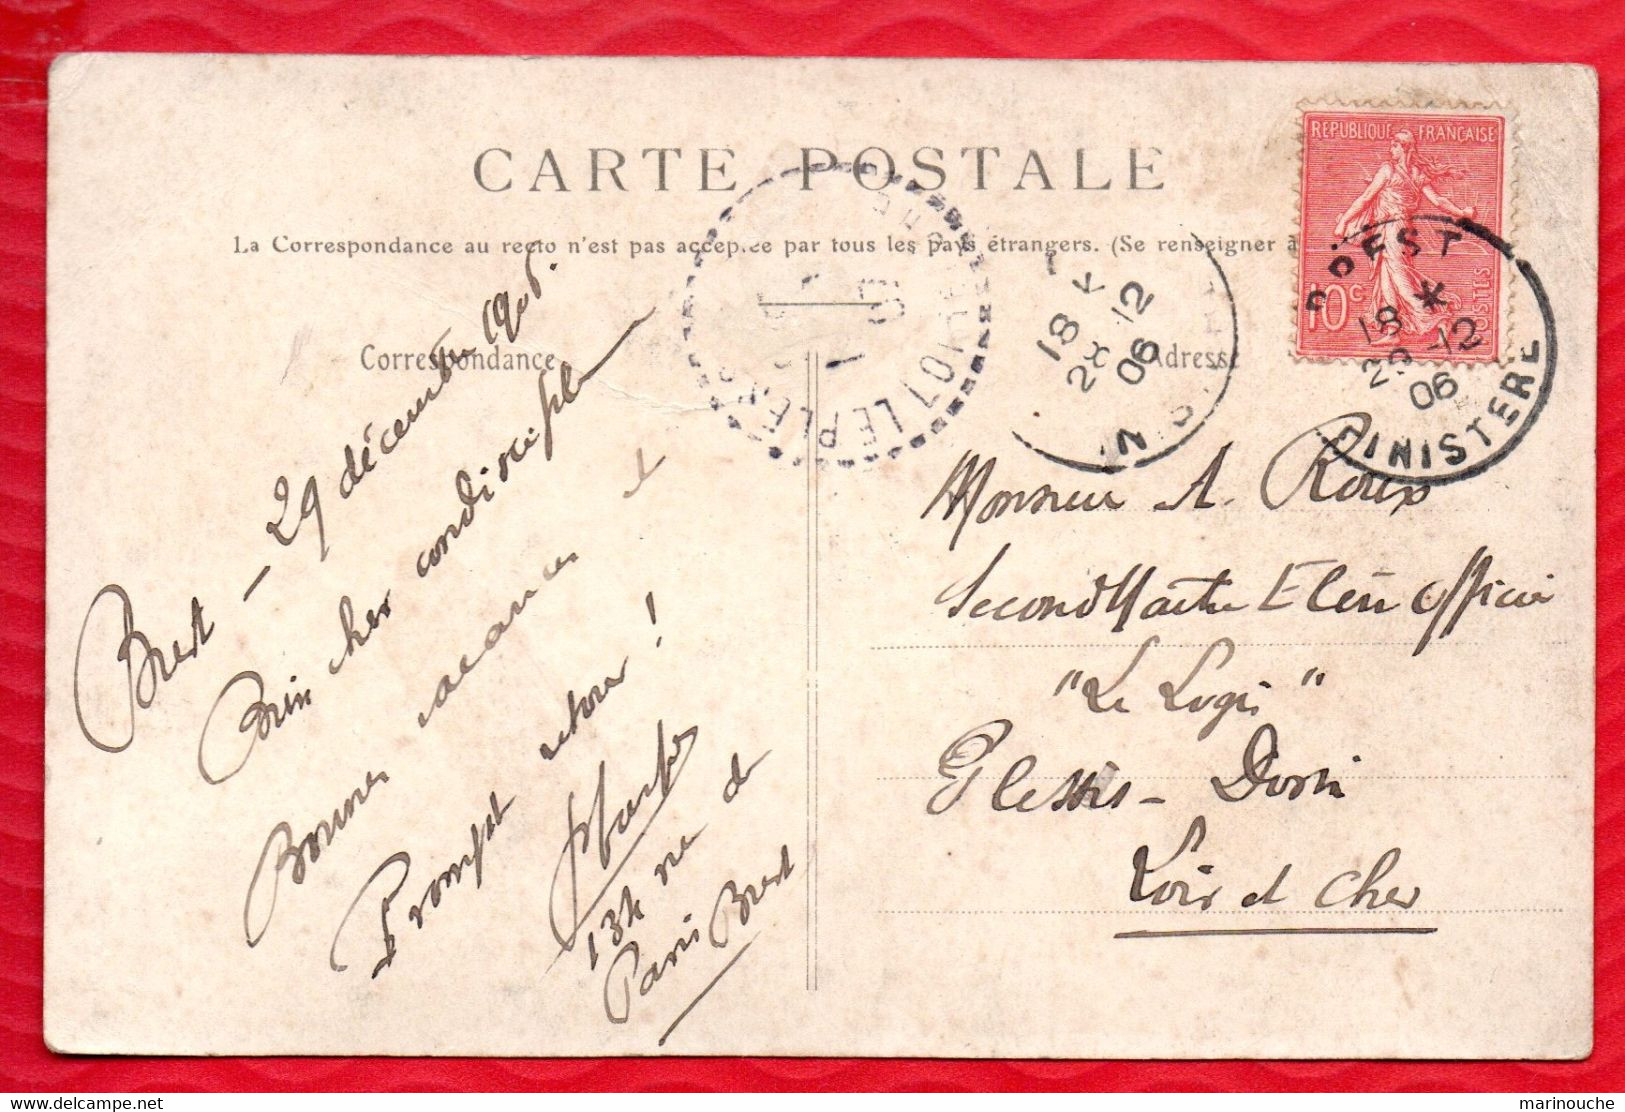 CARTE POSTALE
La Correspondance au recto n'est pas acceptée par tous les pays étrangers. (Se renseigner à
Correspondance
Adresse
REPUBLIQUE FRANÇAISE
10c
POSTES
BREST
18 *
29 -12
06
FINISTERE
18 *
29 -12
06
LE PLESSIS
Brest - 29 décembre 1906.
Bien cher condisciple
Bonnes vacances
Prompt retour !
13h rue de
Paris Brest
Monsieur A. Roux
Second Maître Elève officier
"Le Logis"
Plessis-Dorin
Loir et Cher
marinouche